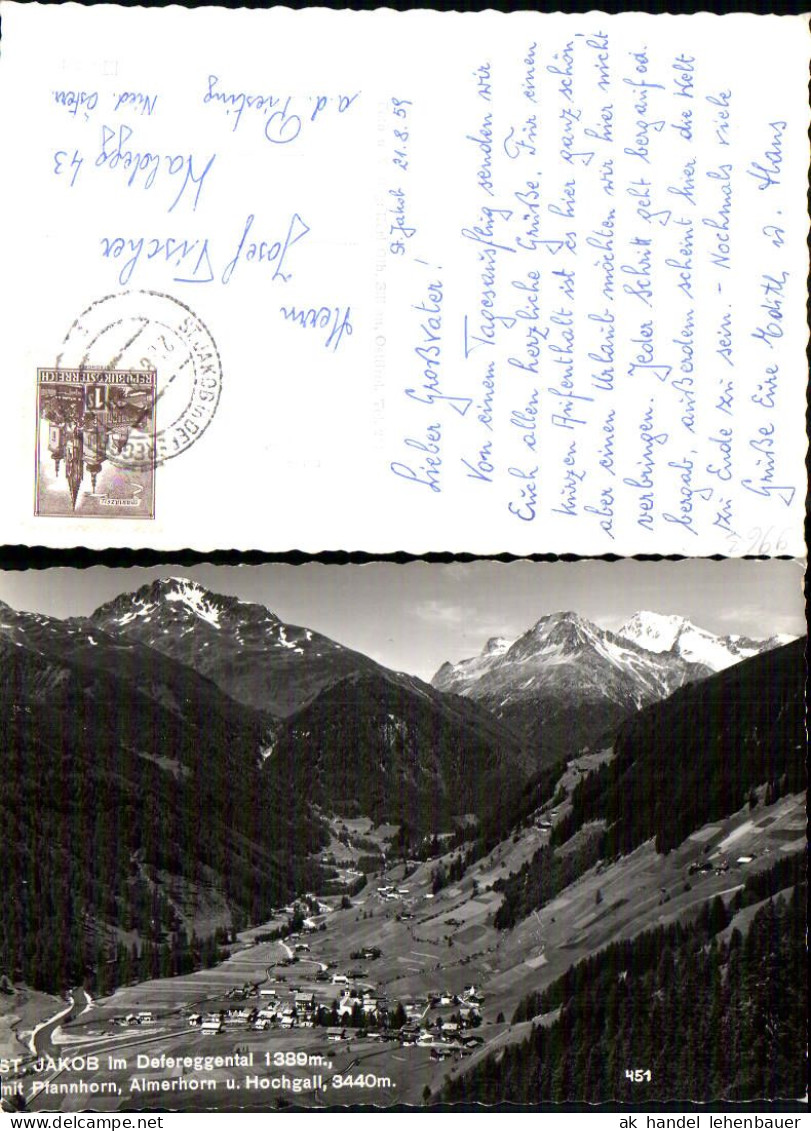 St. Jakob 21.8.59
Lieber Großvater!
Von einem Tagesausflug senden wir
Euch allen herzliche Grüße. Für einen
kurzen Aufenthalt ist es hier ganz schön,
aber einen Urlaub möchten wir hier nicht
verbringen. Jeder Schritt geht bergauf od.
bergab, außerdem scheint hier die Welt
zu Ende zu sein. - Nochmals viele
Grüße Eure Edith u. Hans
Herrn
Josef Fischer
Waldegg 43
a.d. Piesting
Nied. Österr.
REPUBLIK ÖSTERREICH
ST. JAKOB in DEFEREGGEN
ST. JAKOB im Defereggental 1389m.,
mit Pfannhorn, Almerhorn u. Hochgall, 3440m.
451
ak handel lehenbauer